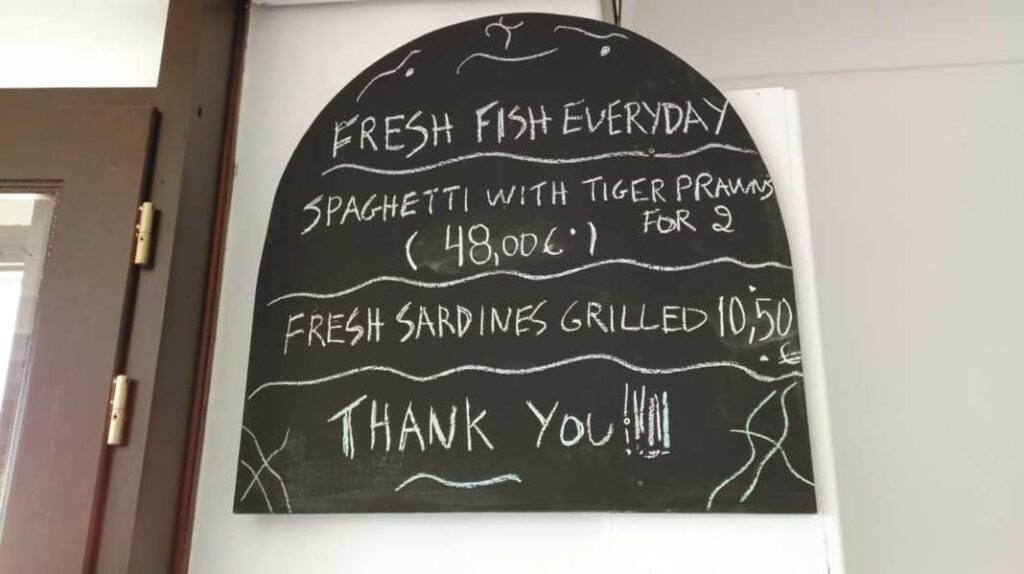 FRESH FISH EVERYDAY
SPAGHETTI WITH TIGER PRAWNS
(48,00€) FOR 2
FRESH SARDINES GRILLED 10,50
€
THANK YOU!!!!!